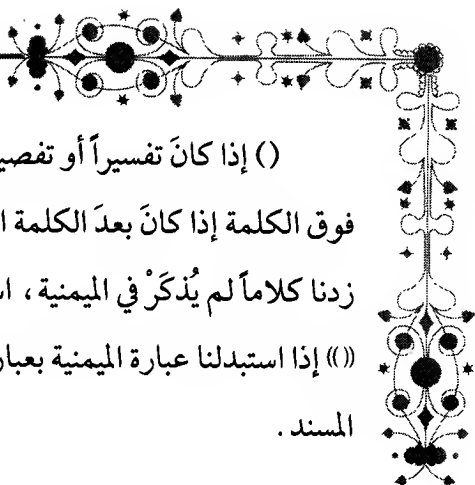 () إذا كانَ تفسيراً أو تفصي
فوق الكلمة إذا كانَ بعدَ الكلمة ا
زدنا كلاماً لم يُذكَرْ في الميمنية ، ا
(()) إذا استبدلنا عبارة الميمنية بعبار
المسند .